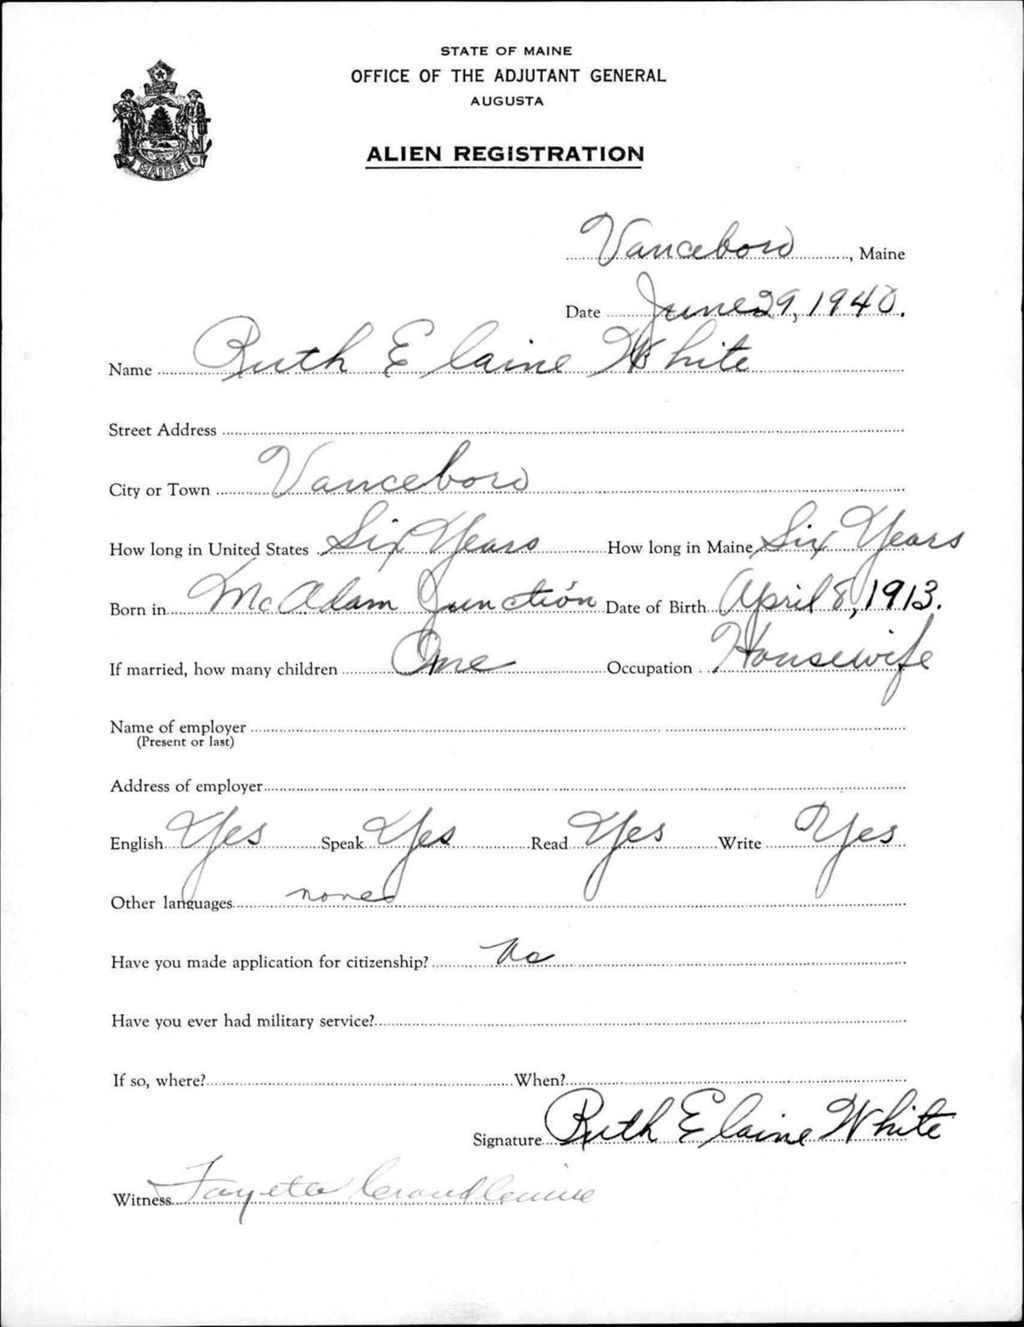 STATE OF MAINE
OFFICE OF THE ADJUTANT GENERAL
AUGUSTA
ALIEN REGISTRATION
MAINE
Vanceboro, Maine
Date June 29, 1940.
Name Ruth Elaine White
Street Address
City or Town Vanceboro
How long in United States Six Years How long in Maine Six Years
Born in McAdam Junction Date of Birth April 8, 1913.
If married, how many children One Occupation Housewife
Name of employer
(Present or last)
Address of employer
English Yes Speak Yes Read Yes Write Yes
Other languages none
Have you made application for citizenship? No
Have you ever had military service?
If so, where? When?
Signature Ruth Elaine White
Witness